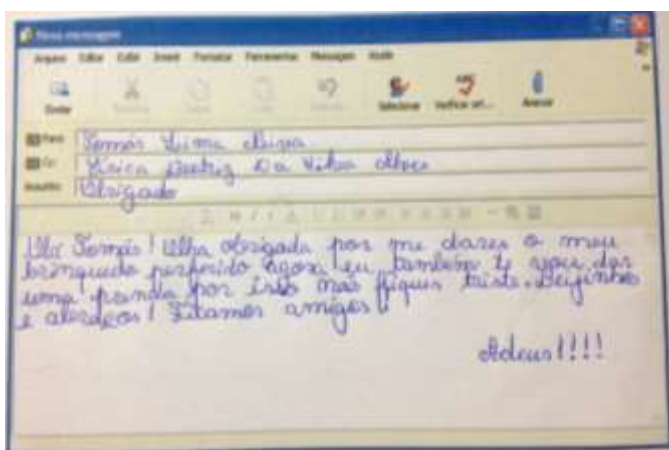 Nova mensagem
Arquivo Editar Exibir Inserir Formatar Ferramentas Mensagem Ajuda
Enviar Selecionar Verificar ort... Anexar
Para: Tomás Lima
Cc: Beatriz Da Silva Alves
Assunto: Obrigado
Olá Tomás! Olha obrigada por me dares o meu
brinquedo perferido agora eu também te vou dar
uma prenda por isso não fiques triste. Beijinhos
e abraços! Ficamos amigos!
Adeus!!!!